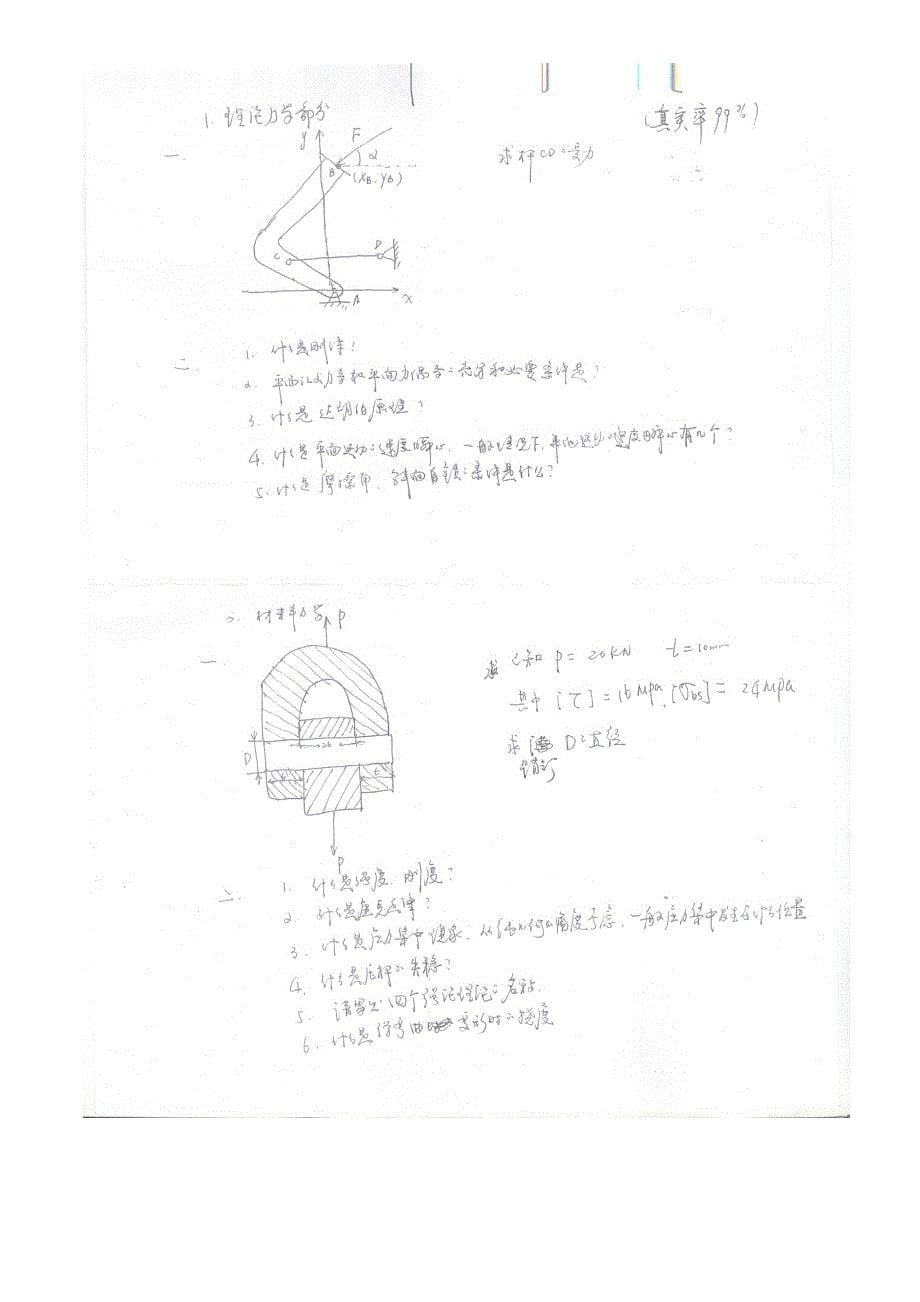 1. 理论力学部分
(真实率99%)
一.
y F α
B (XB, YB)
求杆CD之受力
C D
A x
二
1. 什么是刚体?
2. 平面汇交力系和平面力偶系之充分和必要条件是?
3. 什么是达朗伯原理?
4. 什么是平面运动之速度瞬心, 一般情况下, 速度瞬心有几个?
5. 什么是摩擦角, 斜面自锁之条件是什么?
2. 材料力学
P
一.
已知 P = 20KN t = 10mm
其中 [τ] = 16Mpa, [σbs] = 24Mpa
求 销钉 D之直径
D 2t t t
P
二.
1. 什么是强度, 刚度?
2. 什么是
3. 什么是应力集中现象, 从几何角度考虑, 一般应力集中发生在什么位置
4. 什么是压杆之失稳?
5. 请写出四个强度理论之名称.
6. 什么是弯曲变形时之挠度